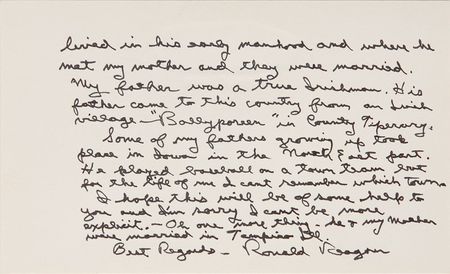 lived in his early manhood and where he
met my mother and they were married.
My father was a true Irishman. His
father came to this country from an Irish
village - "Ballyporeen" in County Tiperary.
Some of my fathers growing up took
place in Iowa in the North East part.
He played baseball on a town team but
for the life of me I cant remember which town.
I hope this will be of some help to
you and I'm sorry I cant be more
explicit. - Oh one more thing - he & my Mother
were married in Tampico Ill.
Best Regards - Ronald Reagan